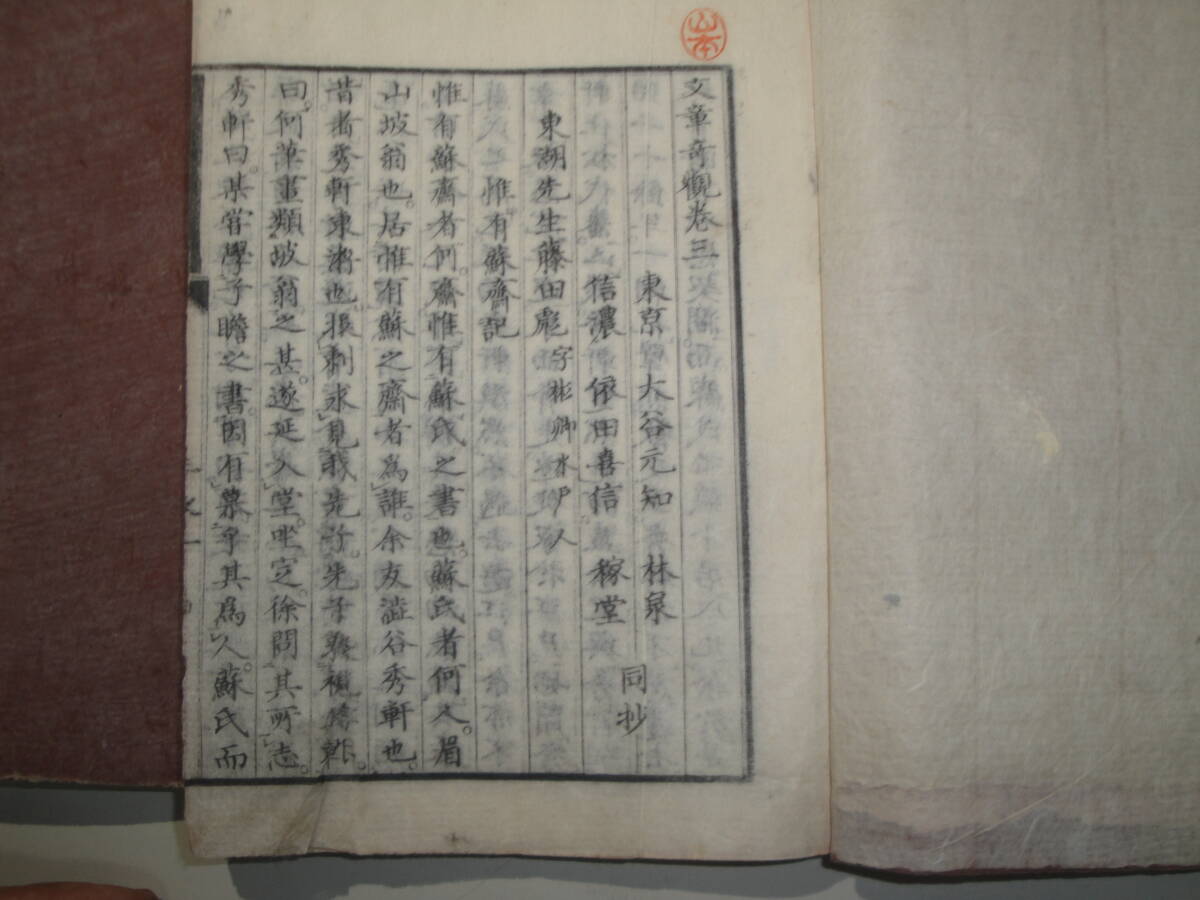 山本
文章奇觀卷三
東京 大谷元知 林泉
信濃 依田喜信 稼堂
同抄
東湖先生藤田彪字彬卿水戶人
惟有蘇齋記
惟有蘇齋者何。齋惟有蘇氏之書也。蘇氏者何人。眉
山坡翁也。居惟有蘇之齋者為誰。余友澁谷秀軒也。
昔者秀軒東游也。投刺求見我先
曰。何筆畫類坡翁之甚。遂延入堂。坐定。徐問其所志。
秀軒曰。某嘗學子瞻之書。因有慕乎其為人。蘇氏而